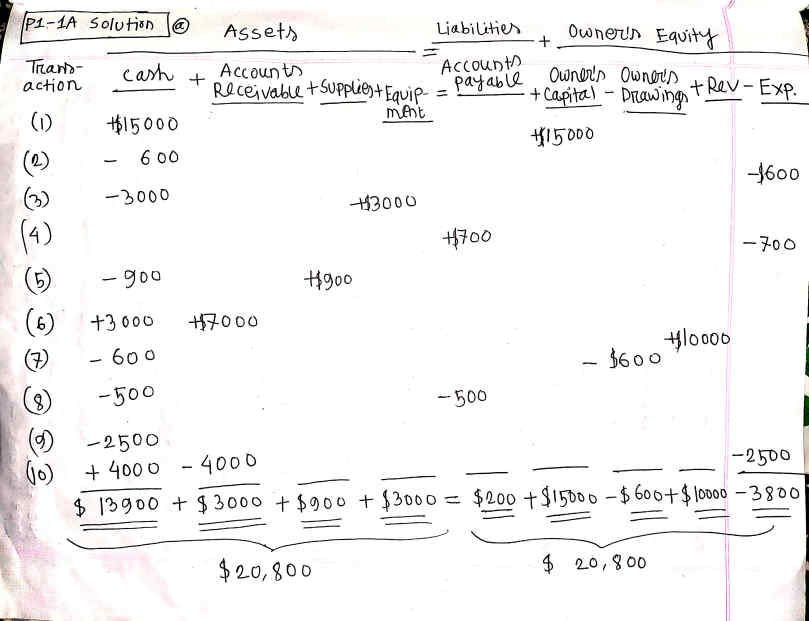 P1-1A Solution (a) Assets = Liabilities + Owner's Equity
Trans-action Cash + Accounts Receivable + Supplies + Equip-ment = Accounts payable + Owner's Capital - Owner's Drawings + Rev - Exp.
(1) +$15000 +$15000
(2) - 600 -$600
(3) -3000 +$3000
(4) +$700 -700
(5) -900 +$900
(6) +3000 +$7000 +$10000
(7) -600 - $600
(8) -500 -500
(9) -2500 -2500
(10) +4000 -4000
$ 13900 + $3000 + $900 + $3000 = $200 + $15000 - $600 + $10000 - 3800
$20,800 $ 20,800